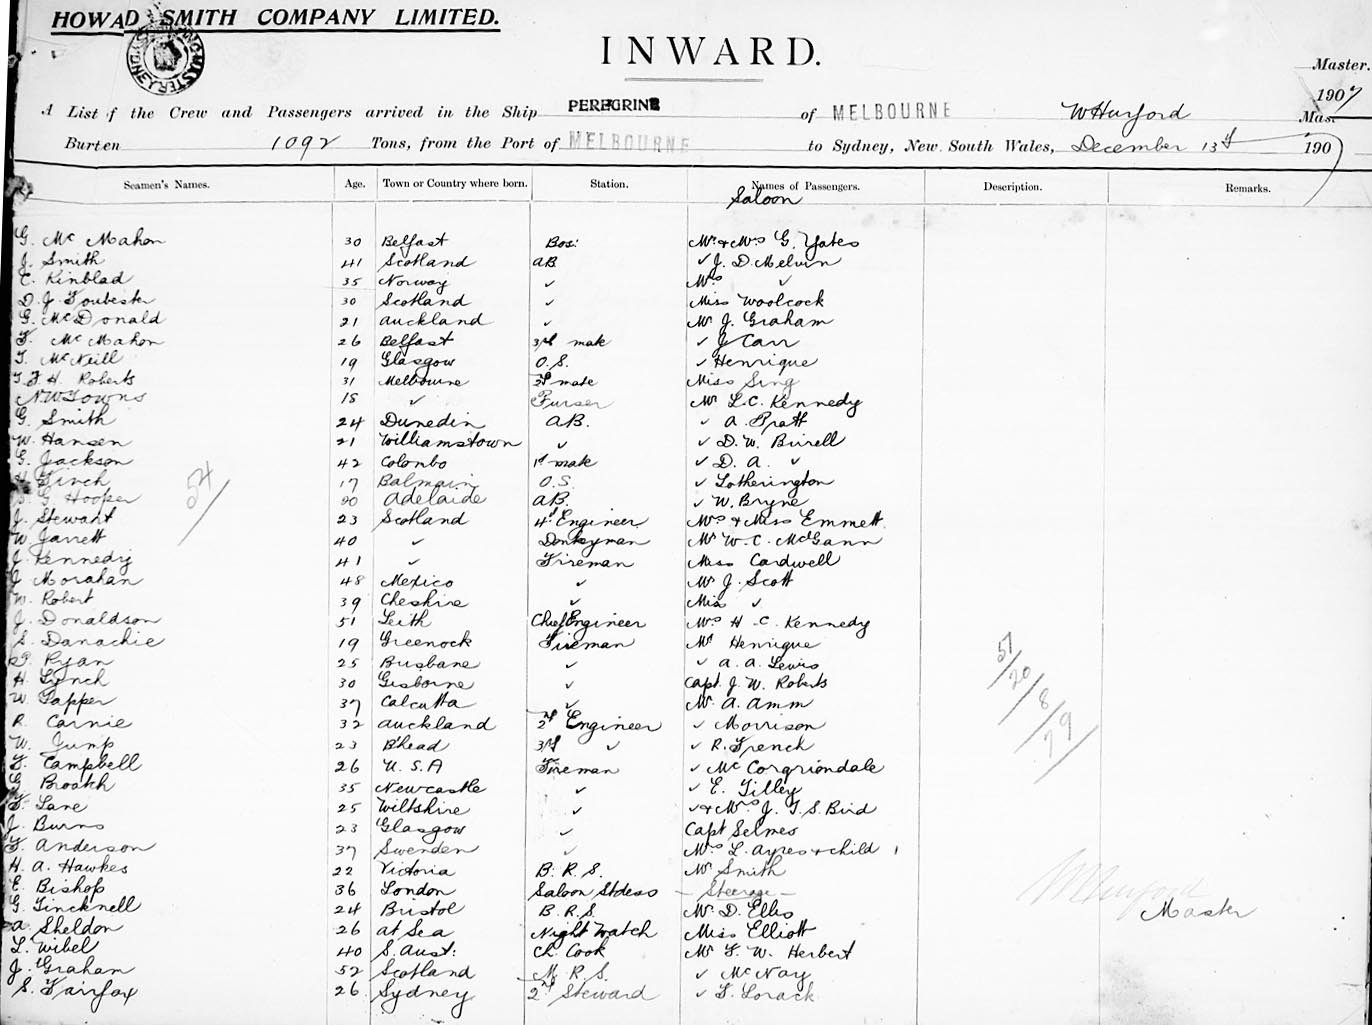 HOWAD SMITH COMPANY LIMITED.
INWARD.
Master.
1907
A List of the Crew and Passengers arrived in the Ship PEREGRINE of MELBOURNE W Hurford Mas.
Burten 1092 Tons, from the Port of MELBOURNE to Sydney, New South Wales, December 13th 1907
Seamen's Names. Age. Town or Country where born. Station. Names of Passengers. Description. Remarks.
Saloon
G. Mc Mahon 30 Belfast Bos: Mr & Mrs G. Yates
J. Smith 41 Scotland AB ✓ J. D. Melvin
E. Kinblad 35 Norway ✓ Mrs ✓
D. J. Foubester 30 Scotland ✓ Miss Woolcock
G. McDonald 21 Auckland ✓ Mr J. Graham
F. Mc Mahon 26 Belfast 3rd mate ✓ J Carr
T. McNeill 19 Glasgow O.S. ✓ Henrique
T. F. H. Roberts 31 Melbourne 2d mate Miss Sing
N W Towns 18 ✓ Purser Mr L.C. Kennedy
G. Smith 24 Dunedin AB. ✓ A. Pratt
W. Hansen 21 Williamstown ✓ ✓ D. W. Birrell
G. Jackson 42 Colombo 1st mate ✓ D. A. ✓
Finch 17 Balmain O.S. ✓ Lotherington
G Hooper 20 Adelaide AB. ✓ W. Bryne
J. Stewart 23 Scotland 4th Engineer Mrs & Miss Emmett
W. Jarrett 40 ✓ Donkeyman Mr W. C. McGann
J. Kennedy 41 ✓ Fireman Miss Cardwell
J Morahan 48 Mexico ✓ Mr J. Scott
W. Robert 39 Cheshire ✓ Miss ✓
J. Donaldson 51 Leith Chief Engineer Mrs H. C. Kennedy
S. Danachie 19 Greenock Fireman Mr Henrique
P. Ryan 25 Brisbane ✓ ✓ A. A. Lewis
H. Lynch 30 Gisborne ✓ Capt. J. W. Roberts
W. Papper 37 Calcutta ✓ Mr A. Amm
R. Carnie 32 Auckland 2d Engineer ✓ Morrison
W. Jump 23 B'head 3rd ✓ ✓ R. French
F. Campbell 26 U.S.A Fireman ✓ Mc Corgriondale
G. Broatch 35 Newcastle ✓ ✓ E. Tilley
F. Lane 25 Wiltshire ✓ ✓ & Mrs J. T. S. Bird
J. Burns 23 Glasgow ✓ Capt Selmes
F. Anderson 37 Swenden ✓ Mrs L. Ayres & child 1
H. A. Hawkes 22 Victoria B. R. S. Mr Smith
E. Bishop 36 London Saloon Stdess - Steerage -
G. Tincknell 24 Bristol B. R. S. Mr D. Ellis
A. Sheldon 26 at Sea Night Watch Miss Elliott
L. Wibel 40 S. Aust: Ch. Cook Mr F. W. Herbert
J. Graham 52 Scotland M. R. S. ✓ McNay
S. Fairfax 26 Sydney 2nd Steward ✓ F. Lorack
54
57
20
8
79
W Hurford
Master